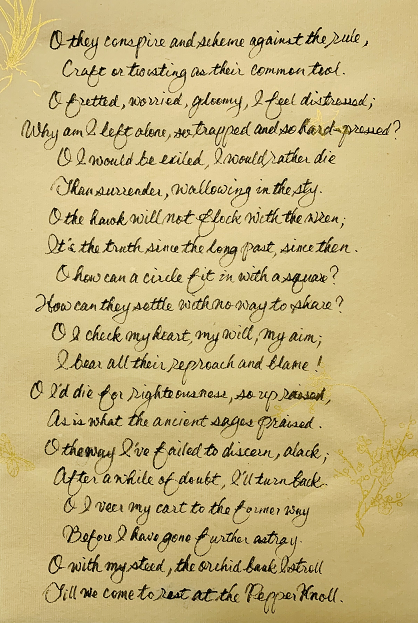 O they conspire and scheme against the rule,
Craft or twisting as their common tool.
O fretted, worried, gloomy, I feel distressed;
Why am I left alone, so trapped and so hard-pressed?
O I would be exiled, I would rather die
Than surrender, wallowing in the sty.
O the hawk will not flock with the wren;
It's the truth since the long past, since then.
O how can a circle fit in with a square?
How can they settle with no way to share?
O I check my heart, my will, my aim;
I bear all their reproach and blame!
O I'd die for righteousness, so up
As is what the ancient sages praised.
O the way I've failed to discern, alack;
After a while of doubt, I'll turn back.
O I veer my cart to the former way
Before I have gone further astray.
O with my steed, the orchid bank I stroll
Till we come to rest at the Pepper Knoll.